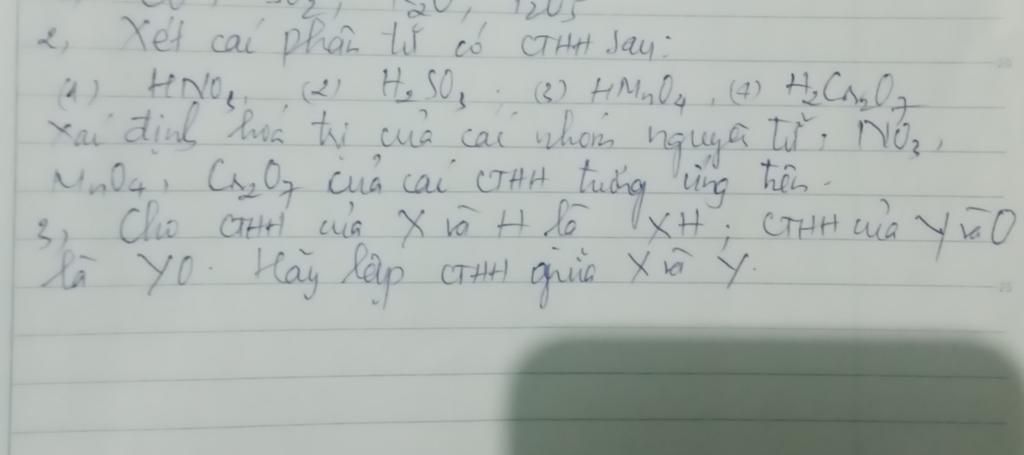 2, Xét các phân tử có CTHH sau:
(1) HNO3, (2) H2SO3. (3) HMnO4, (4) H2Cr2O7
Xác định hoá trị của các nhóm nguyên tử: NO3,
MnO4, Cr2O7 của các CTHH tương ứng trên.
3, Cho CTHH của X và H là XH; CTHH của Y và O
là YO. Hãy lập CTHH giữa X và Y.